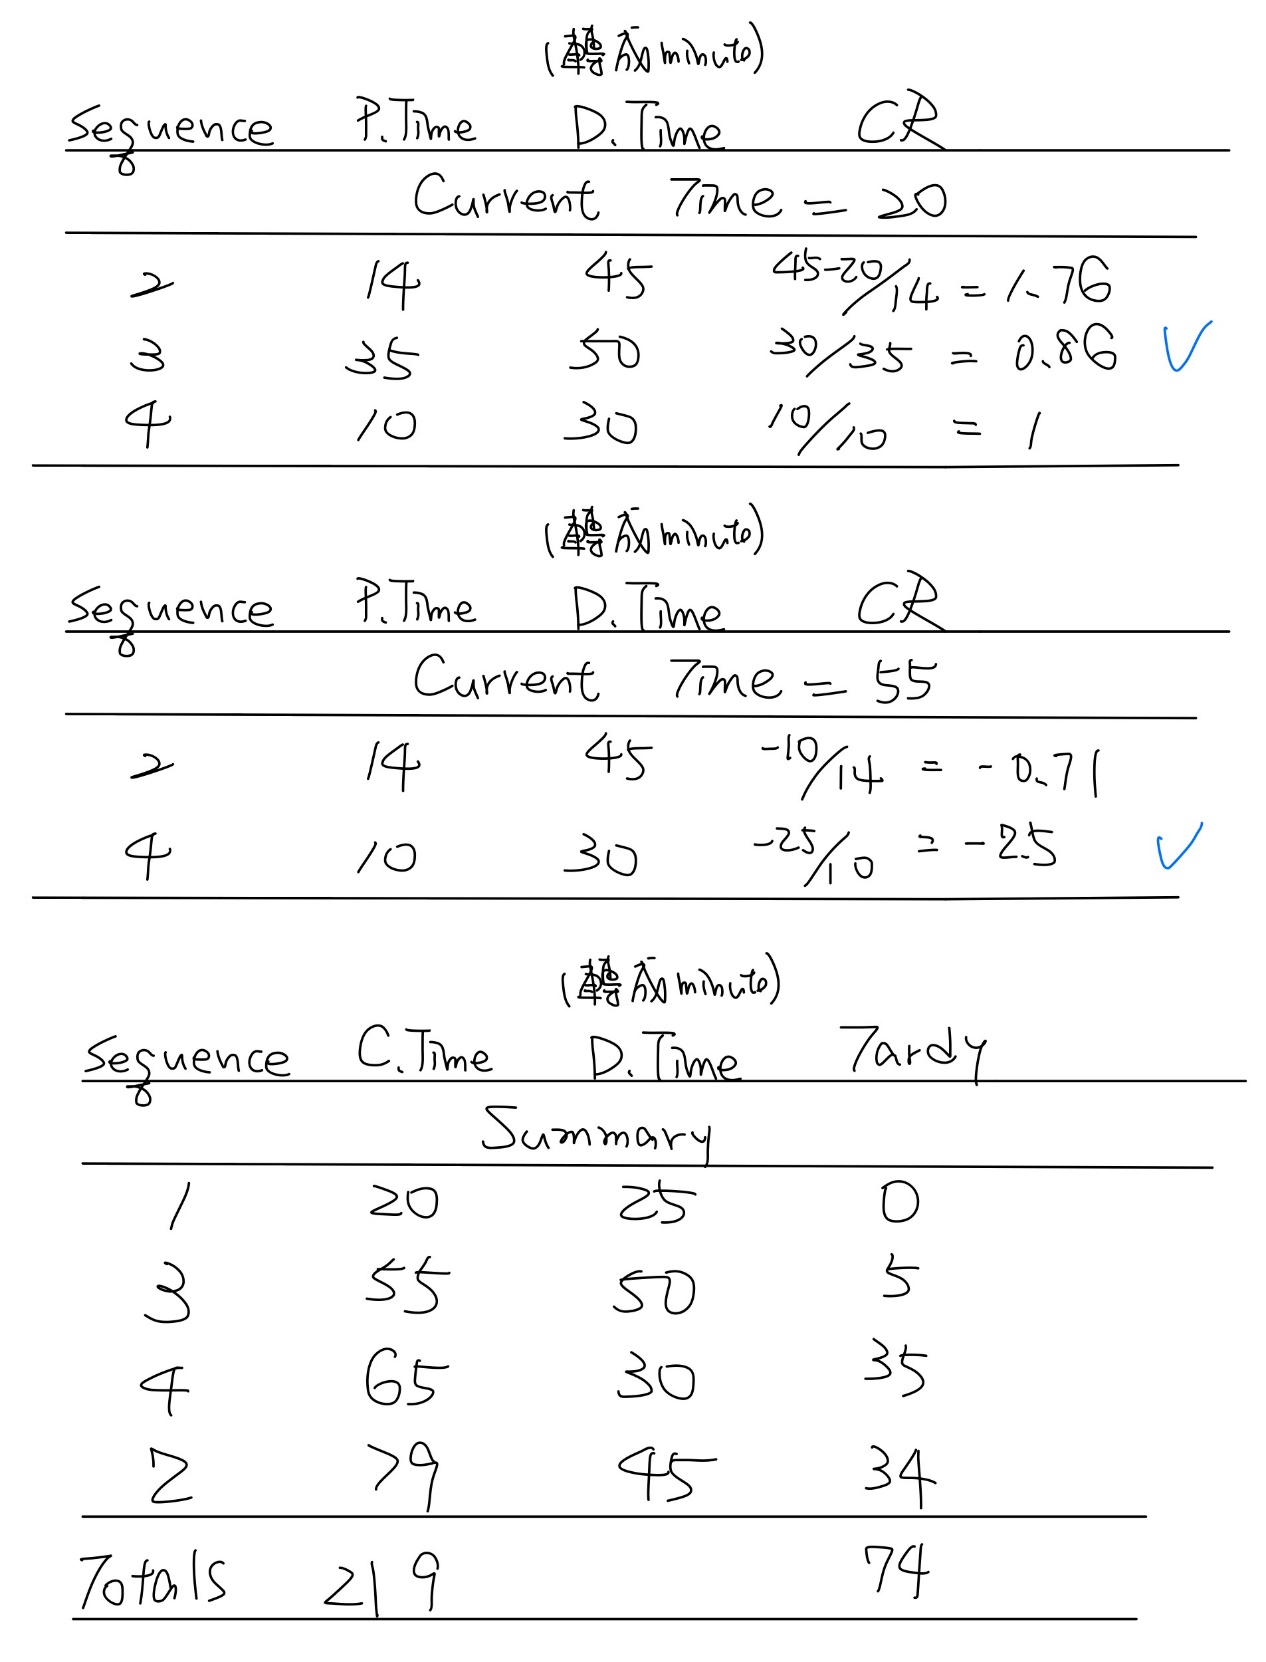 (轉成minute)
Sequence P.Time D.Time CR
Current Time = 20
2 14 45 45-20/14 = 1.76
3 35 50 30/35 = 0.86 ✓
4 10 30 10/10 = 1
(轉成minute)
Sequence P.Time D.Time CR
Current Time = 55
2 14 45 -10/14 = -0.71
4 10 30 -25/10 = -2.5 ✓
(轉成minute)
Sequence C.Time D.Time Tardy
Summary
1 20 25 0
3 55 50 5
4 65 30 35
2 79 45 34
Totals 219 74